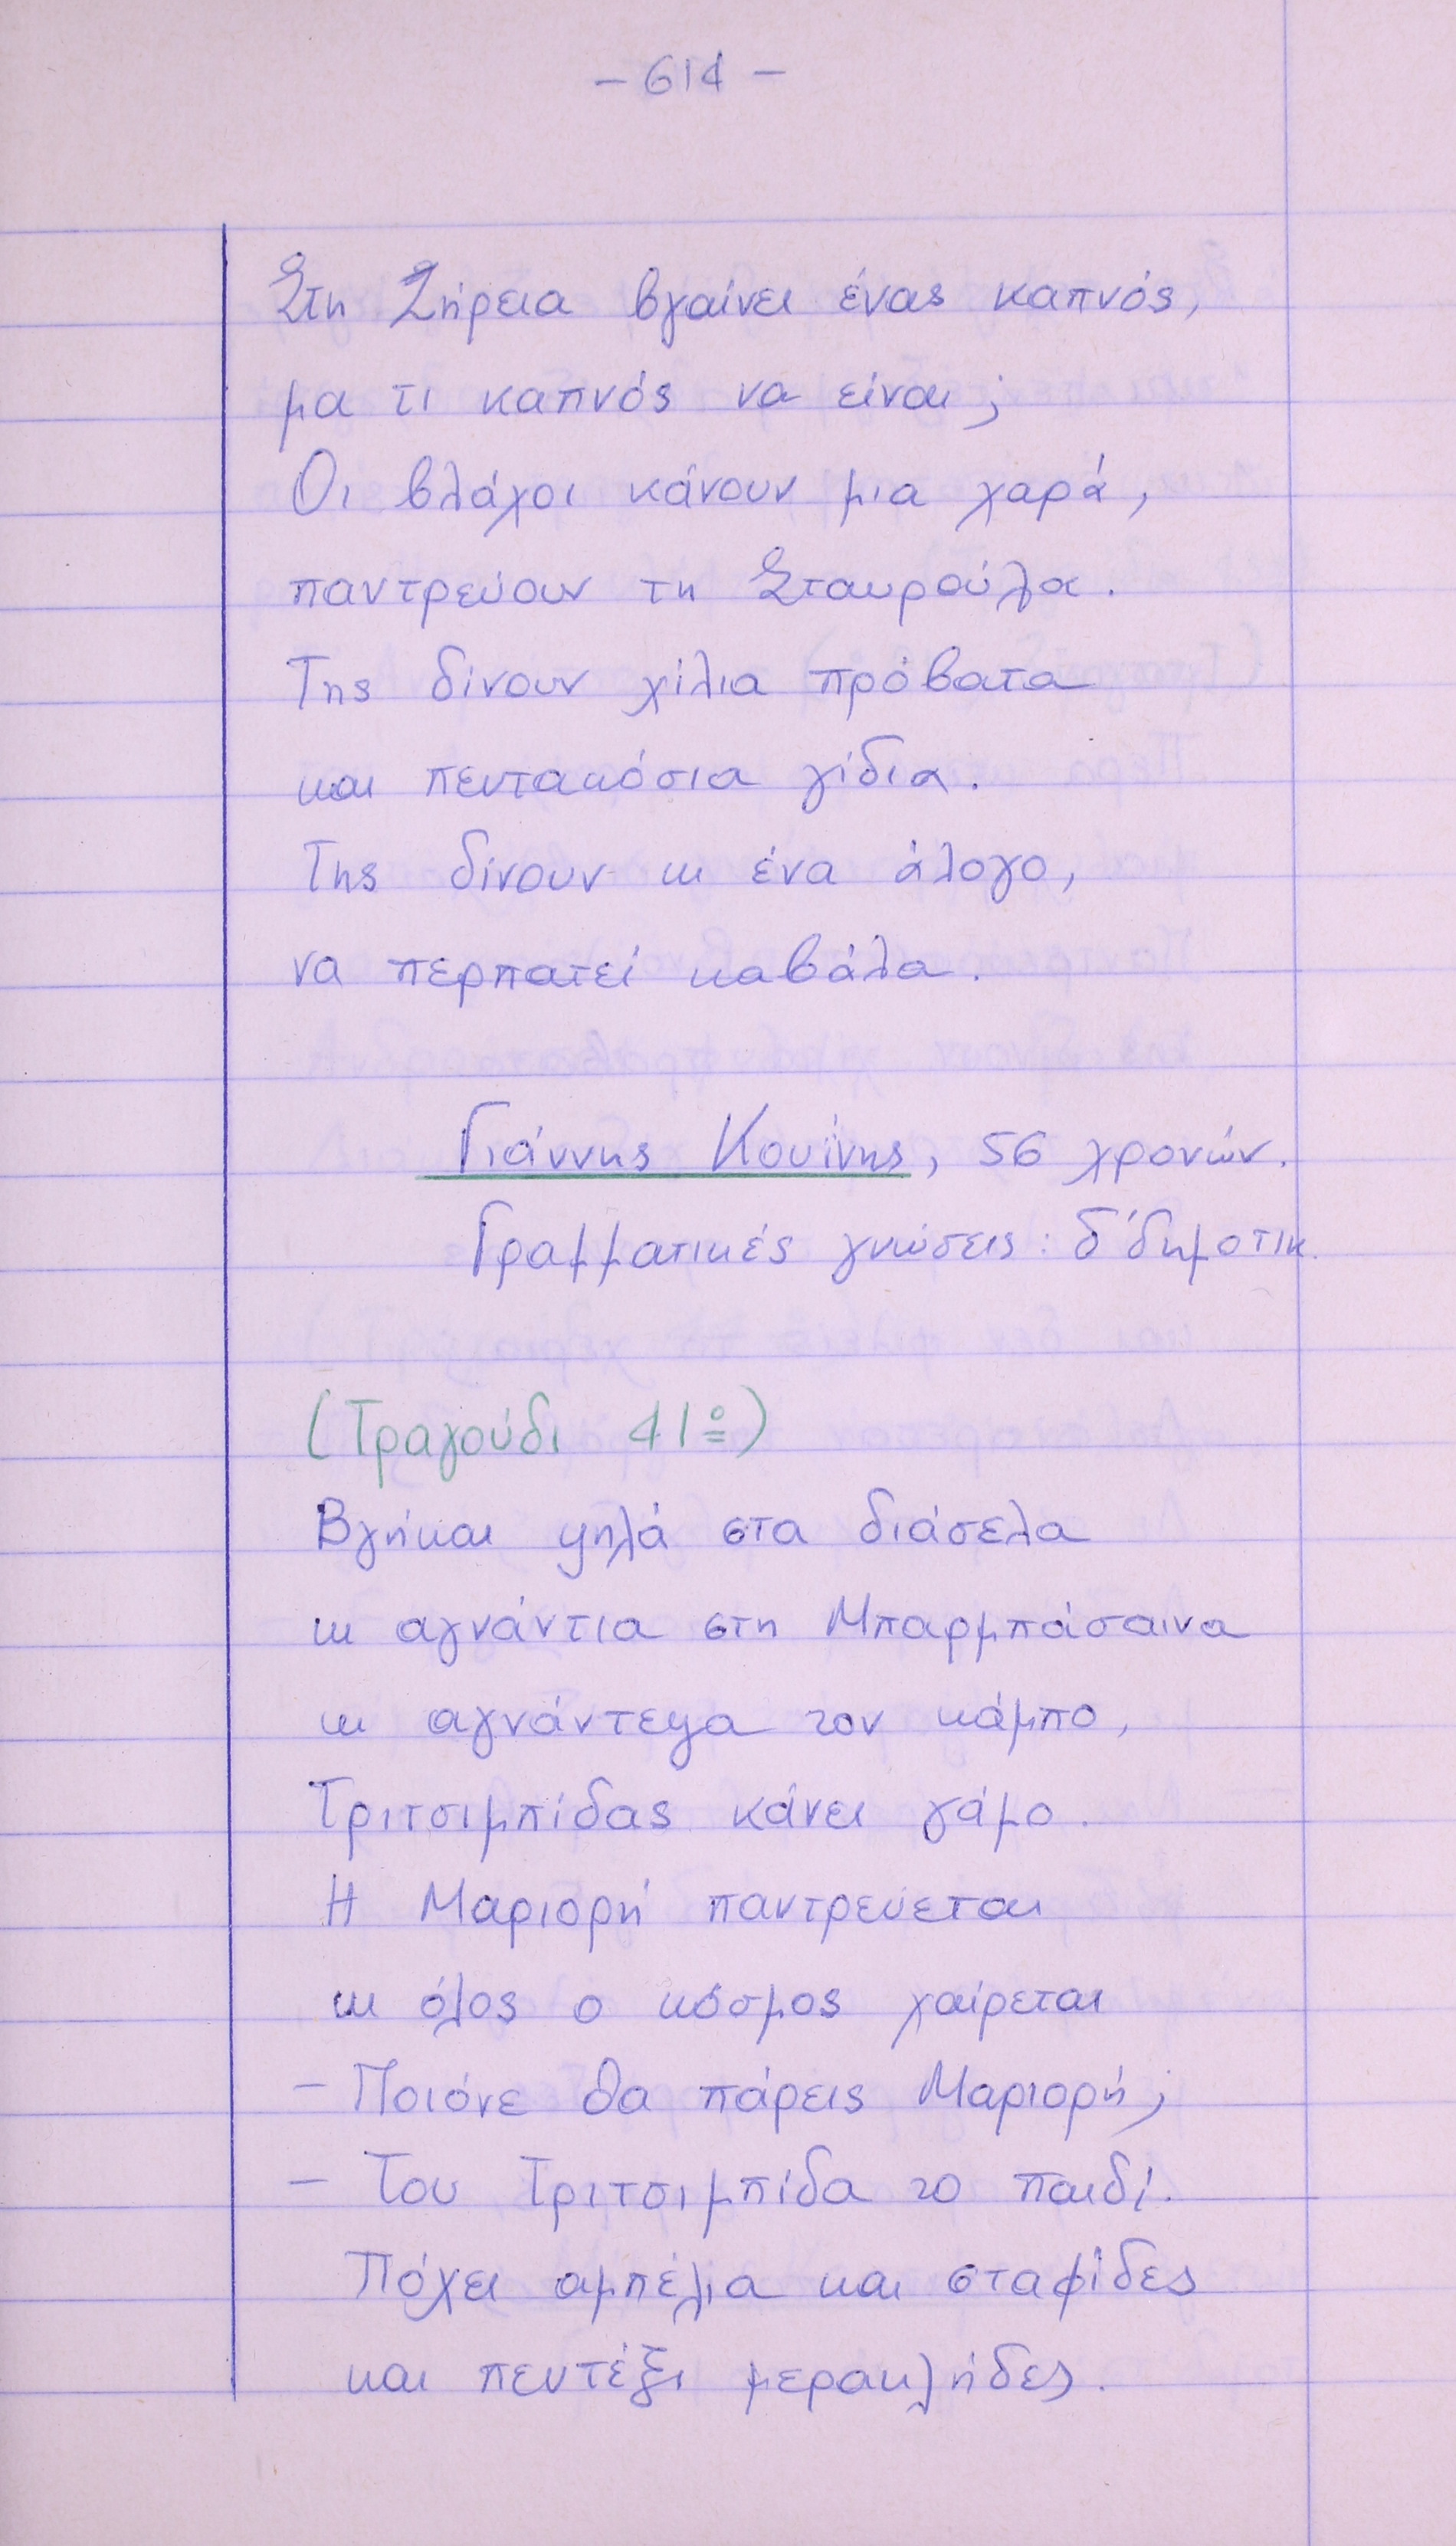 - 614 -
Στη Ζήρεια βγαίνει ένας καπνός,
μα τι καπνός να είναι;
Οι βλάχοι κάνουν μια χαρά,
παντρεύουν τη Σταυρούλα.
Της δίνουν χίλια πρόβατα
και πεντακόσια γίδια.
Της δίνουν κι ένα άλογο,
να περπατεί καβάλα.
Γιάννης Κουίνης, 56 χρονών.
Γραμματικές γνώσεις: δ΄ δημοτικ.
(Τραγούδι 41º)
Βγήκαι ψηλά στα διάσελα
κι αγνάντια στη Μπαρμπάσαινα
κι αγνάντεψα τον κάμπο,
Τριτσιμπίδας κάνει γάμο.
Η Μαριορή παντρεύεται
κι όλος ο κόσμος χαίρεται
- Ποιόνε θα πάρεις Μαριορή;
- Του Τριτσιμπίδα το παιδί.
Πόχει αμπέλια και σταφίδες
και πεντέξι μερακλήδες.